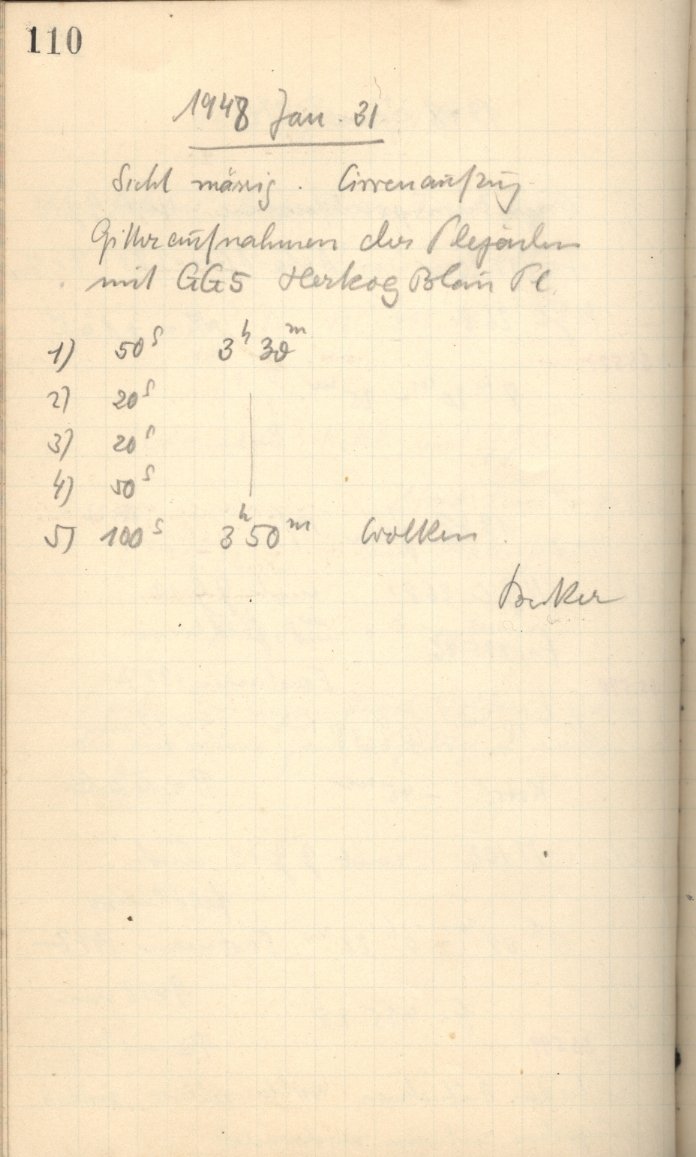 110
1948 Jan. 31
Sicht mässig. Cirrenaufzug
Gitteraufnahmen der Plejaden
mit GG5 Herzog Blau Pl.
1) 50s 3h 30m
2) 20s
3) 20s
4) 50s
5) 100s 3h 50m Wolken.